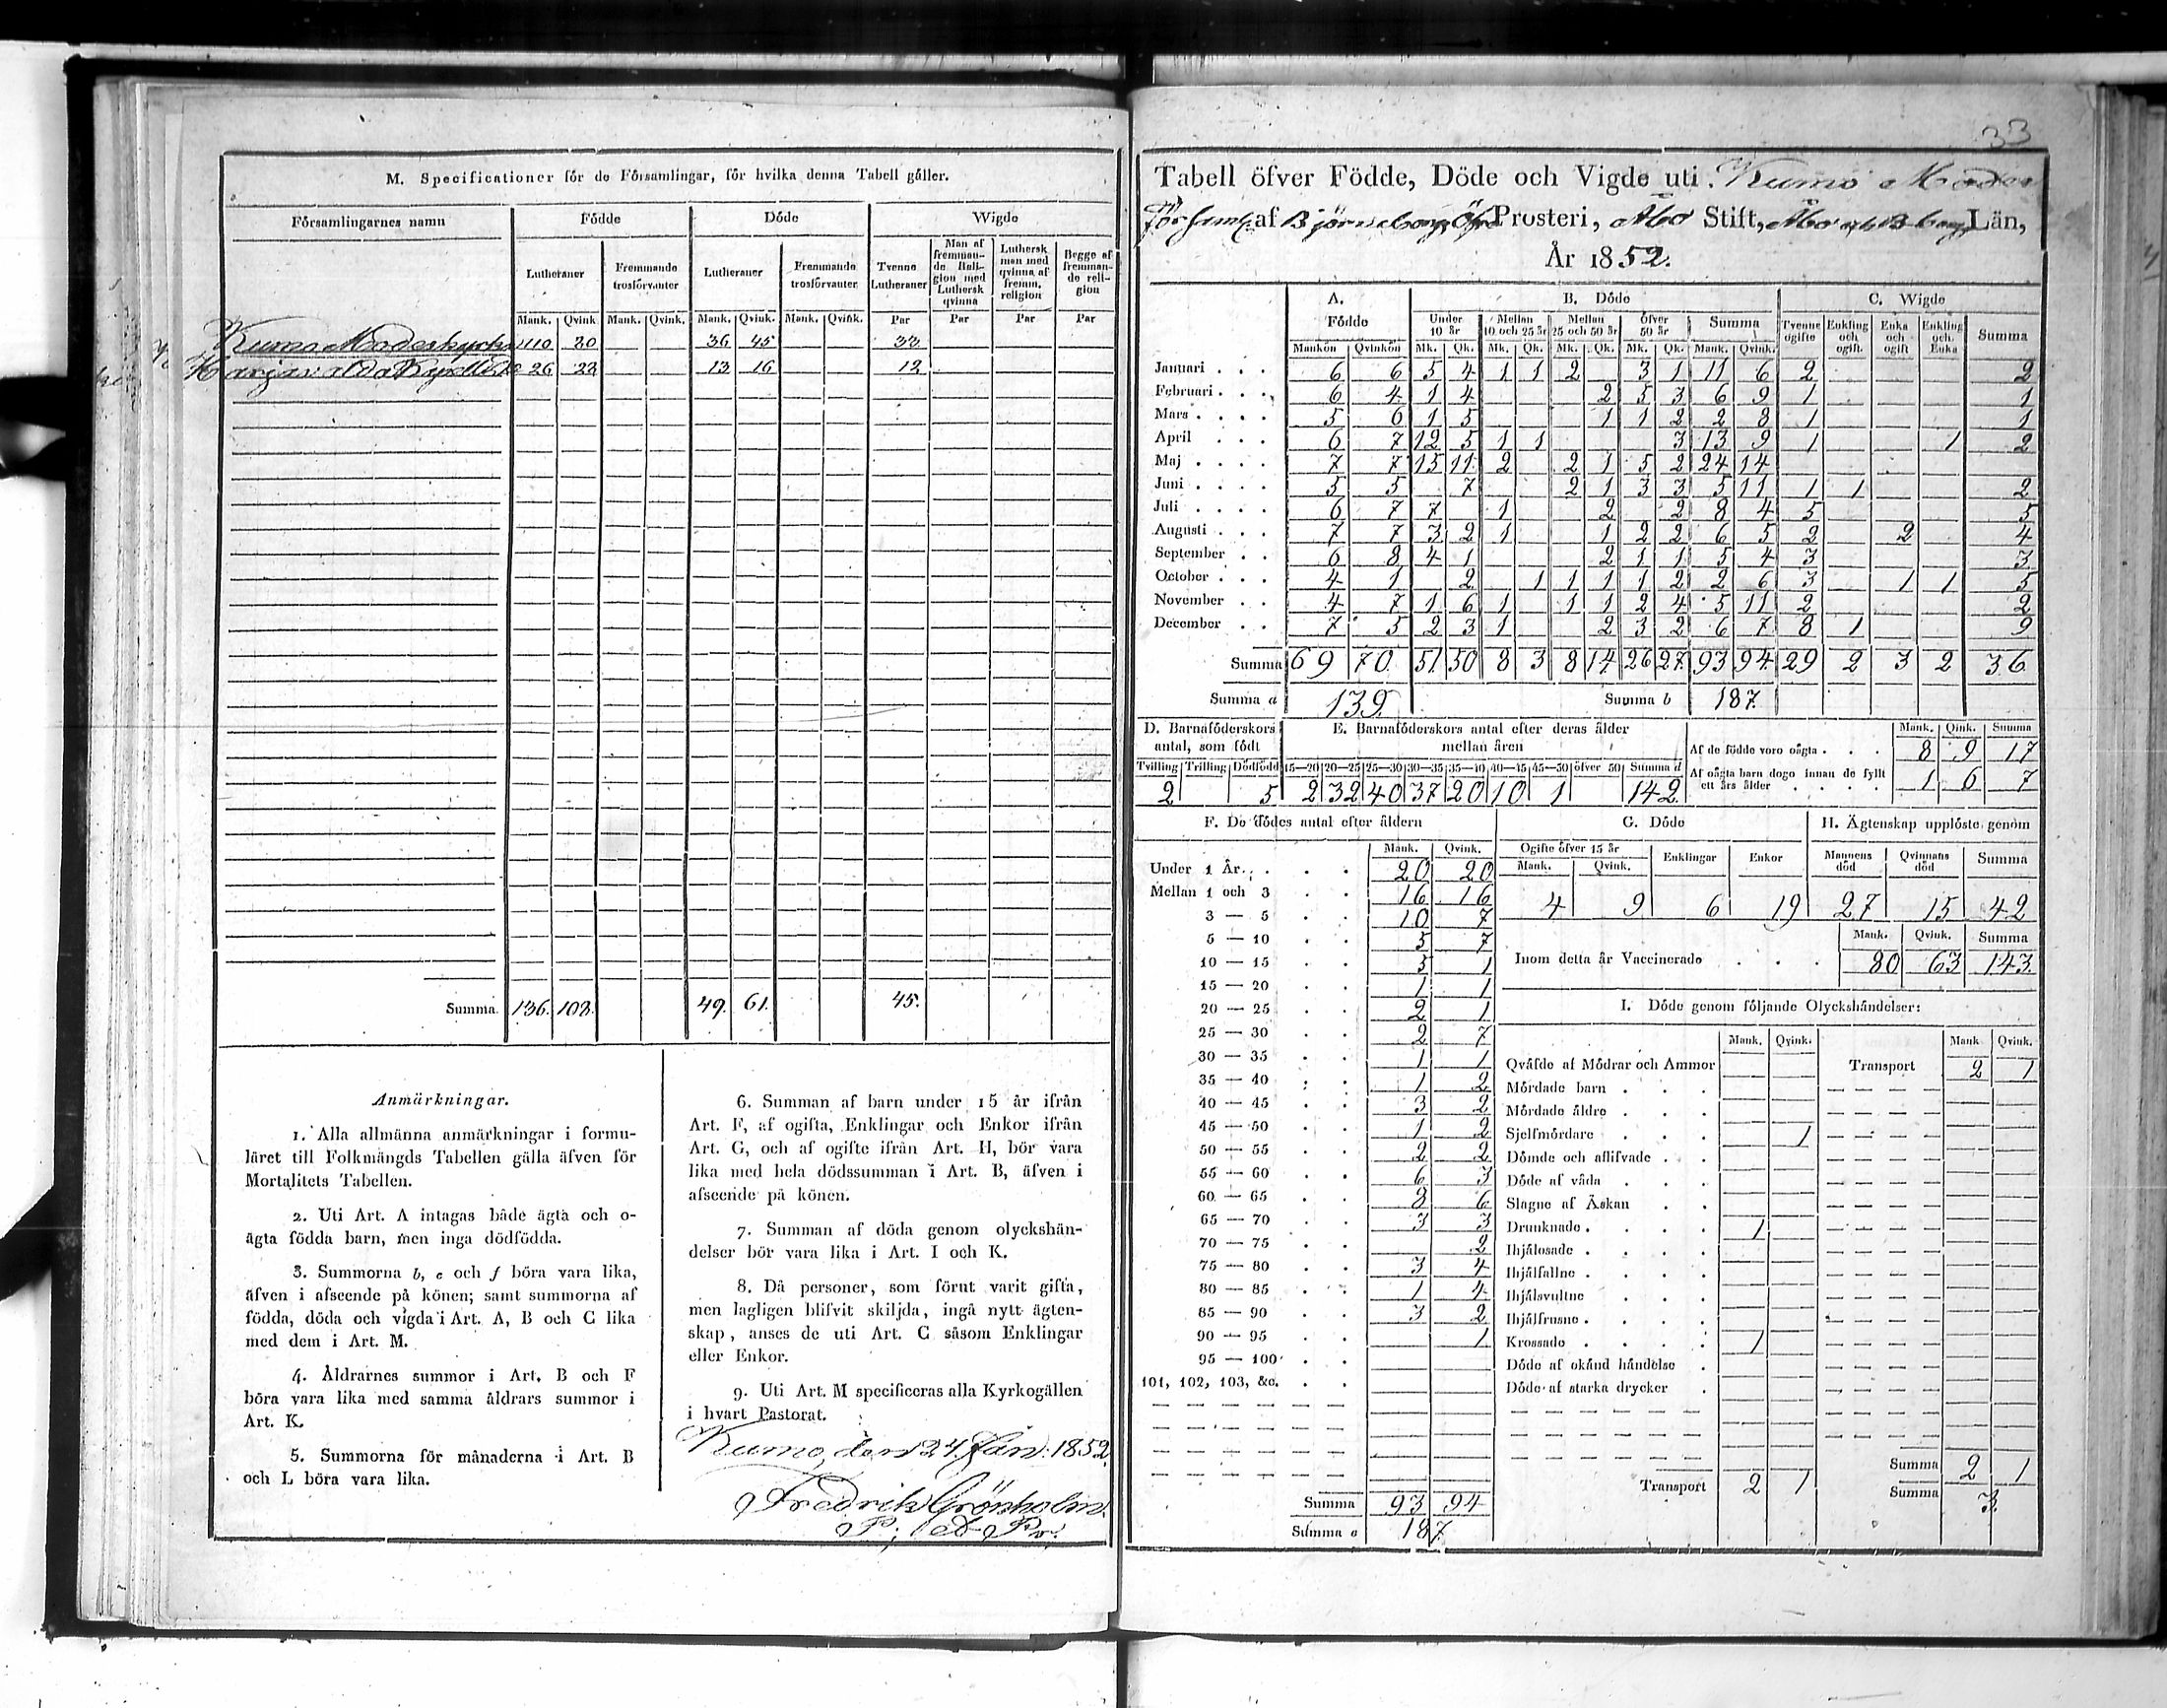 M. Specificationer för de Församlingar, för hvilka denna Tabell gäller.
Församlingarnes namn Födde Döde Wigde
Lutheraner Fremmande trosförvanter Lutheraner Fremmande trosförvanter Tvenne Lutheraner Man af fremmande Religion med Luthersk qvinna Luthersk man med qvinna af fremm. religion Begge af fremmande religion
Mank. Qvink. Mank. Qvink. Mank. Qvink. Mank. Qvink. Par Par Par Par
Kumo Moderkyrka 110 80 36 45 33
Harjavalda Kapell 26 28 13 16 12
Summa 136. 108. 49. 61. 45.
Anmärkningar.
1. Alla allmänna anmärkningar i formu-
läret till Folkmängds Tabellen gälla äfven för
Mortalitets Tabellen.
2. Uti Art. A intagas både ägta och o-
ägta födda barn, men inga dödfödda.
3. Summorna b, e och f böra vara lika,
äfven i afseende på könen; samt summorna af
födda, döda och vigda i Art. A, B och C lika
med dem i Art. M.
4. Åldrarnes summor i Art. B och F
böra vara lika med samma åldrars summor i
Art. K.
5. Summorna för månaderna i Art. B
och L böra vara lika.
6. Summan af barn under 15 år ifrån
Art. F, af ogifta, Enklingar och Enkor ifrån
Art. G, och af ogifte ifrån Art. H, bör vara
lika med hela dödssumman i Art. B, äfven i
afseende på könen.
7. Summan af döda genom olyckshän-
delser bör vara lika i Art. I och K.
8. Då personer, som förut varit gifta,
men lagligen blifvit skiljda, ingå nytt ägten-
skap, anses de uti Art. C såsom Enklingar
eller Enkor.
9. Uti Art. M specificeras alla Kyrkogällen
i hvart Pastorat.
Kumo, den 24 Jan: 1852
Fredrik Grönholm.
33
Tabell öfver Födde, Döde och Vigde uti Kumo Moder
Församl. af Björneborgs Öfre Prosteri, Åbo Stift, Åbo och B.borgs Län,
År 1852.
A. B. Döde C. Wigde
Födde Under 10 år Mellan 10 och 25 år Mellan 25 och 50 år Öfver 50 år Summa Tvenne ogifte Enkling och ogift Enka och ogift Enkling och Enka Summa
Mankön Qvinkön Mk. Qk. Mk. Qk. Mk. Qk. Mk. Qk. Mank. Qvink.
Januari 6 6 5 4 1 1 2 3 1 11 6 2 2
Februari 6 4 1 4 2 5 3 6 9 1 1
Mars 5 6 1 5 1 1 2 2 8 1 1
April 6 7 12 5 1 1 3 13 9 1 1 2
Maj 7 7 15 11 2 2 1 5 2 24 14
Juni 5 5 7 2 1 3 3 5 11 1 1 2
Juli 6 7 7 1 2 2 8 4 5 5
Augusti 7 7 3 2 1 1 2 2 6 5 2 2 4
September 6 8 4 1 2 1 1 5 4 3 3
October 4 1 2 1 1 1 1 2 2 6 3 1 1 5
November 4 7 1 6 1 1 1 2 4 5 11 2 2
December 7 5 2 3 1 2 3 2 6 7 8 1 9
Summa 69 70 51 50 8 3 8 14 26 27 93 94 29 2 3 2 36
Summa a 139. Summa b 187
D. Barnaföderskors antal, som födt
Tvilling Trilling Dödfödd
2 5
E. Barnaföderskors antal efter deras ålder
mellan åren
15—20 20—25 25—30 30—35 35—40 40—45 45—50 öfver 50 Summa d
2 32 40 37 20 10 1 142
Mank. Qink. Summa
Af de födde voro oägta 8 9 17
Af oägta barn dogo innan de fyllt ett års ålder 1 6 7
F. De dödes antal efter åldern
Mank. Qvink.
Under 1 År 20 20
Mellan 1 och 3 16 16
3 — 5 10 7
5 — 10 5 7
10 — 15 5 1
15 — 20 1 1
20 — 25 2 1
25 — 30 2 7
30 — 35 1 1
35 — 40 1 2
40 — 45 3 2
45 — 50 1 2
50 — 55 2 2
55 — 60 6 3
60 — 65 8 6
65 — 70 3 3
70 — 75 2
75 — 80 3 4
80 — 85 1 4
85 — 90 3 2
90 — 95 1
95 — 100
101, 102, 103, &c.
Summa 93 94
Summa e 187.
G. Döde
Ogifte öfver 15 år Enklingar Enkor
Mank. Qvink.
4 9 6 19
H. Ägtenskap upplöste genom
Mannens död Qvinnans död Summa
27 15 42
Mank. Qvink. Summa
Inom detta år Vaccinerade 80 63 143
I. Döde genom följande Olyckshändelser:
Mank. Qvink. Mank. Qvink.
Qväfde af Mödrar och Ammor Transport 2 1
Mördade barn
Mördade äldre
Sjelfmördare 1
Dömde och aflifvade
Döde af våda
Slagne af Åskan
Drunknade 1
Ihjälosade
Ihjälfallne
Ihjälsvultne
Ihjälfrusne
Krossade 1
Döde af okänd händelse
Döde af starka drycker
Transport 2 1
Summa 2 1
Summa 3.